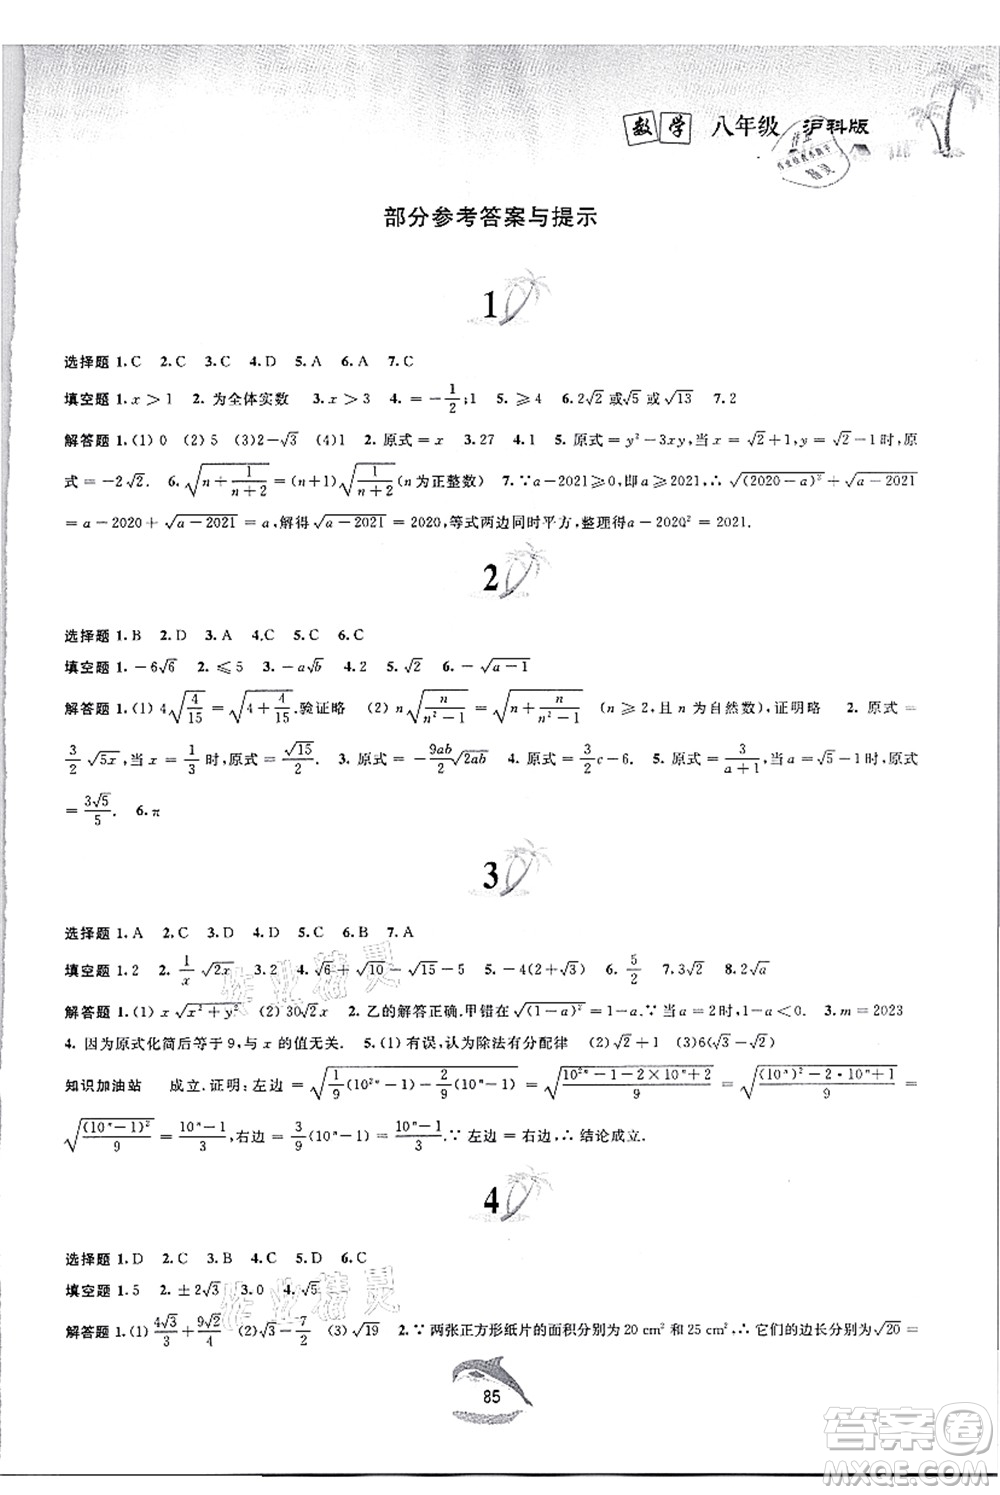 数学 八年级 沪科版
部分参考答案与提示
1
选择题 1. C 2. C 3. C 4. D 5. A 6. A 7. C
填空题 1. x＞1 2. 为全体实数 3. x＞3 4. =-1/2;1 5. ≥4 6. 2√2 或√5 或√13 7. 2
解答题 1. (1) 0 (2) 5 (3)2-√3 (4)1 2. 原式=x 3. 27 4. 1 5. 原式=y²-3xy,当 x=√2+1,y=√2-1时,原
式=-2√2. 6. √(n+1/(n+2))=(n+1)√(1/(n+2))(n为正整数) 7. ∵a-2021≥0,即a≥2021,∴√((2020-a)²)+√(a-2021)
=a-2020+√(a-2021)=a,解得√(a-2021)=2020,等式两边同时平方,整理得a-2020²=2021.
2
选择题 1. B 2. D 3. A 4. C 5. C 6. C
填空题 1. -6√6 2. ≤5 3. -a√b 4. 2 5. √2 6. -√(a-1)
解答题 1. (1) 4√(4/15)=√(4+4/15).验证略 (2) n√(n/(n²-1))=√(n+n/(n²-1)) (n≥2,且 n 为自然数),证明略 2. 原式=
3/2 √5x,当 x=1/3时,原式=√15/2 3. 原式=-9ab/2√2ab 4. 原式=3/2c-6. 5. 原式=3/(a+1),当 a=√5-1时,原式
=3√5/5. 6. π
3
选择题 1. A 2. C 3. D 4. D 5. C 6. B 7. A
填空题 1. 2 2. 1/x √2x 3. 2 4. √6+√10-√15-5 5. -4(2+√5) 6. 5/2 7. 3√2 8. 2√a
解答题 1. (1) x√(x²+y²) (2) 30√2x 2. 乙的解答正确.甲错在√((1-a)²)=1-a.∵当a=2时,1-a＜0. 3. m=2023
4. 因为原式化简后等于 9,与 x 的值无关. 5. (1) 有误,认为除法有分配律 (2)√2+1 (3)6(√3-√2)
知识加油站 成立.证明:左边=√(1/9(10²ⁿ-1)-2/9(10ⁿ-1))=√((10²ⁿ-1-2×10ⁿ+2)/9)=√(((10ⁿ)²-2×10ⁿ+1)/9)=
√((10ⁿ-1)²/9)=(10ⁿ-1)/3,右边=3/9(10ⁿ-1)=(10ⁿ-1)/3.∵左边=右边,∴结论成立.
4
选择题 1. D 2. C 3. B 4. C 5. D 6. C
填空题 1. 5 2. ±2√3 3. 0 4. √5
解答题 1. (1) 4√3/3+9√2/4 (2)√3-7/2 (3) √19 2. ∵两张正方形纸片的面积分别为20 cm²和25 cm²,∴它们的边长分别为√20=
85
作业精灵
作业精灵
答案卷
MXQE.COM